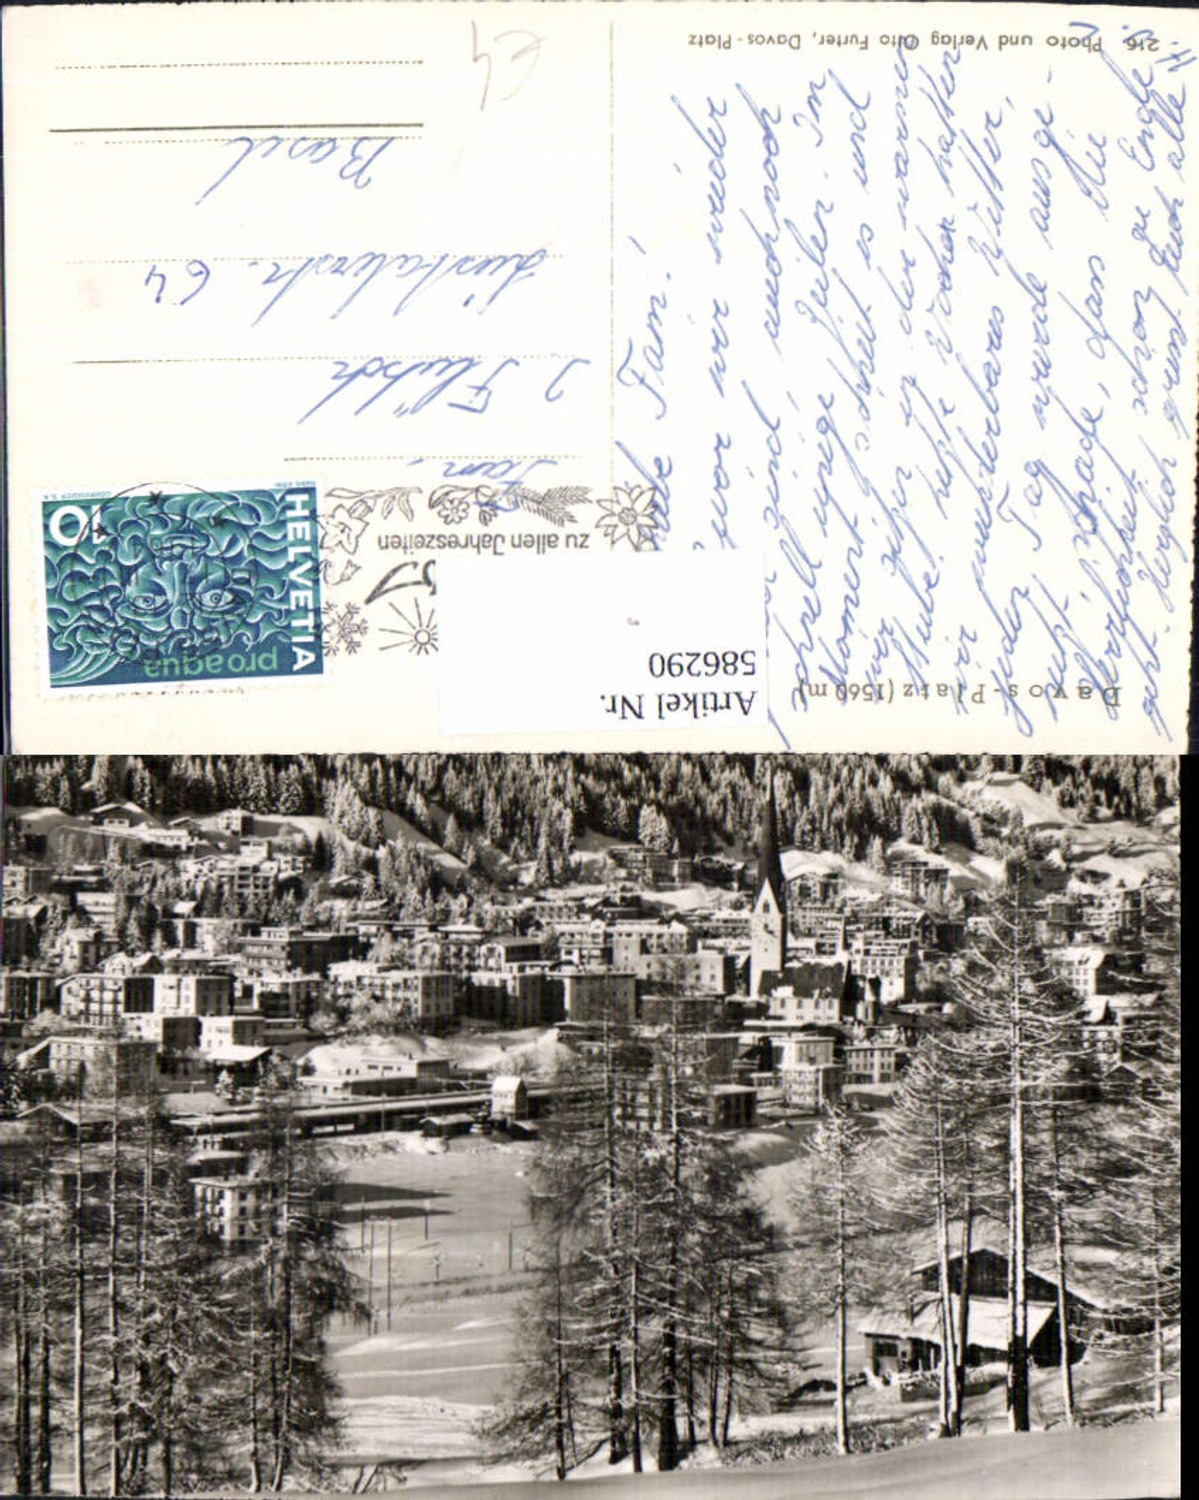 216 Photo und Verlag Otto Furter, Davos-Platz
Davos-Platz (1560 m)
Artikel Nr.
586290
zu allen Jahreszeiten
HELVETIA
pro aqua
10
Fam.
J. Flütsch
Liestalerstr. 64
Basel
Fam!
bevor wir wieder
sind, auch noch
schnell einige Zeilen. Im
Moment schneit es und
wir sitzen in der warmen
Stube. Letzte Woche hatten
wir wunderbares Wetter,
jeden Tag wurde ausge-
nutzt. Schade, dass die
Herrlichkeit schon zu Ende
geht. Herzlich grüsst Euch alle